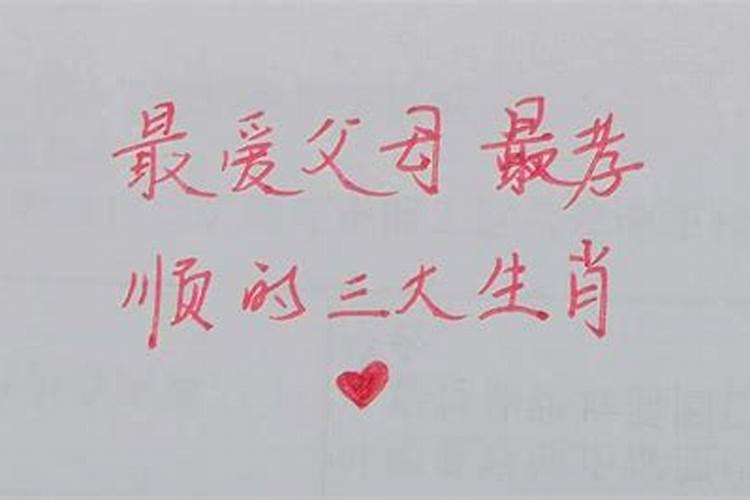 最爱父母 最孝
顺的三大生肖